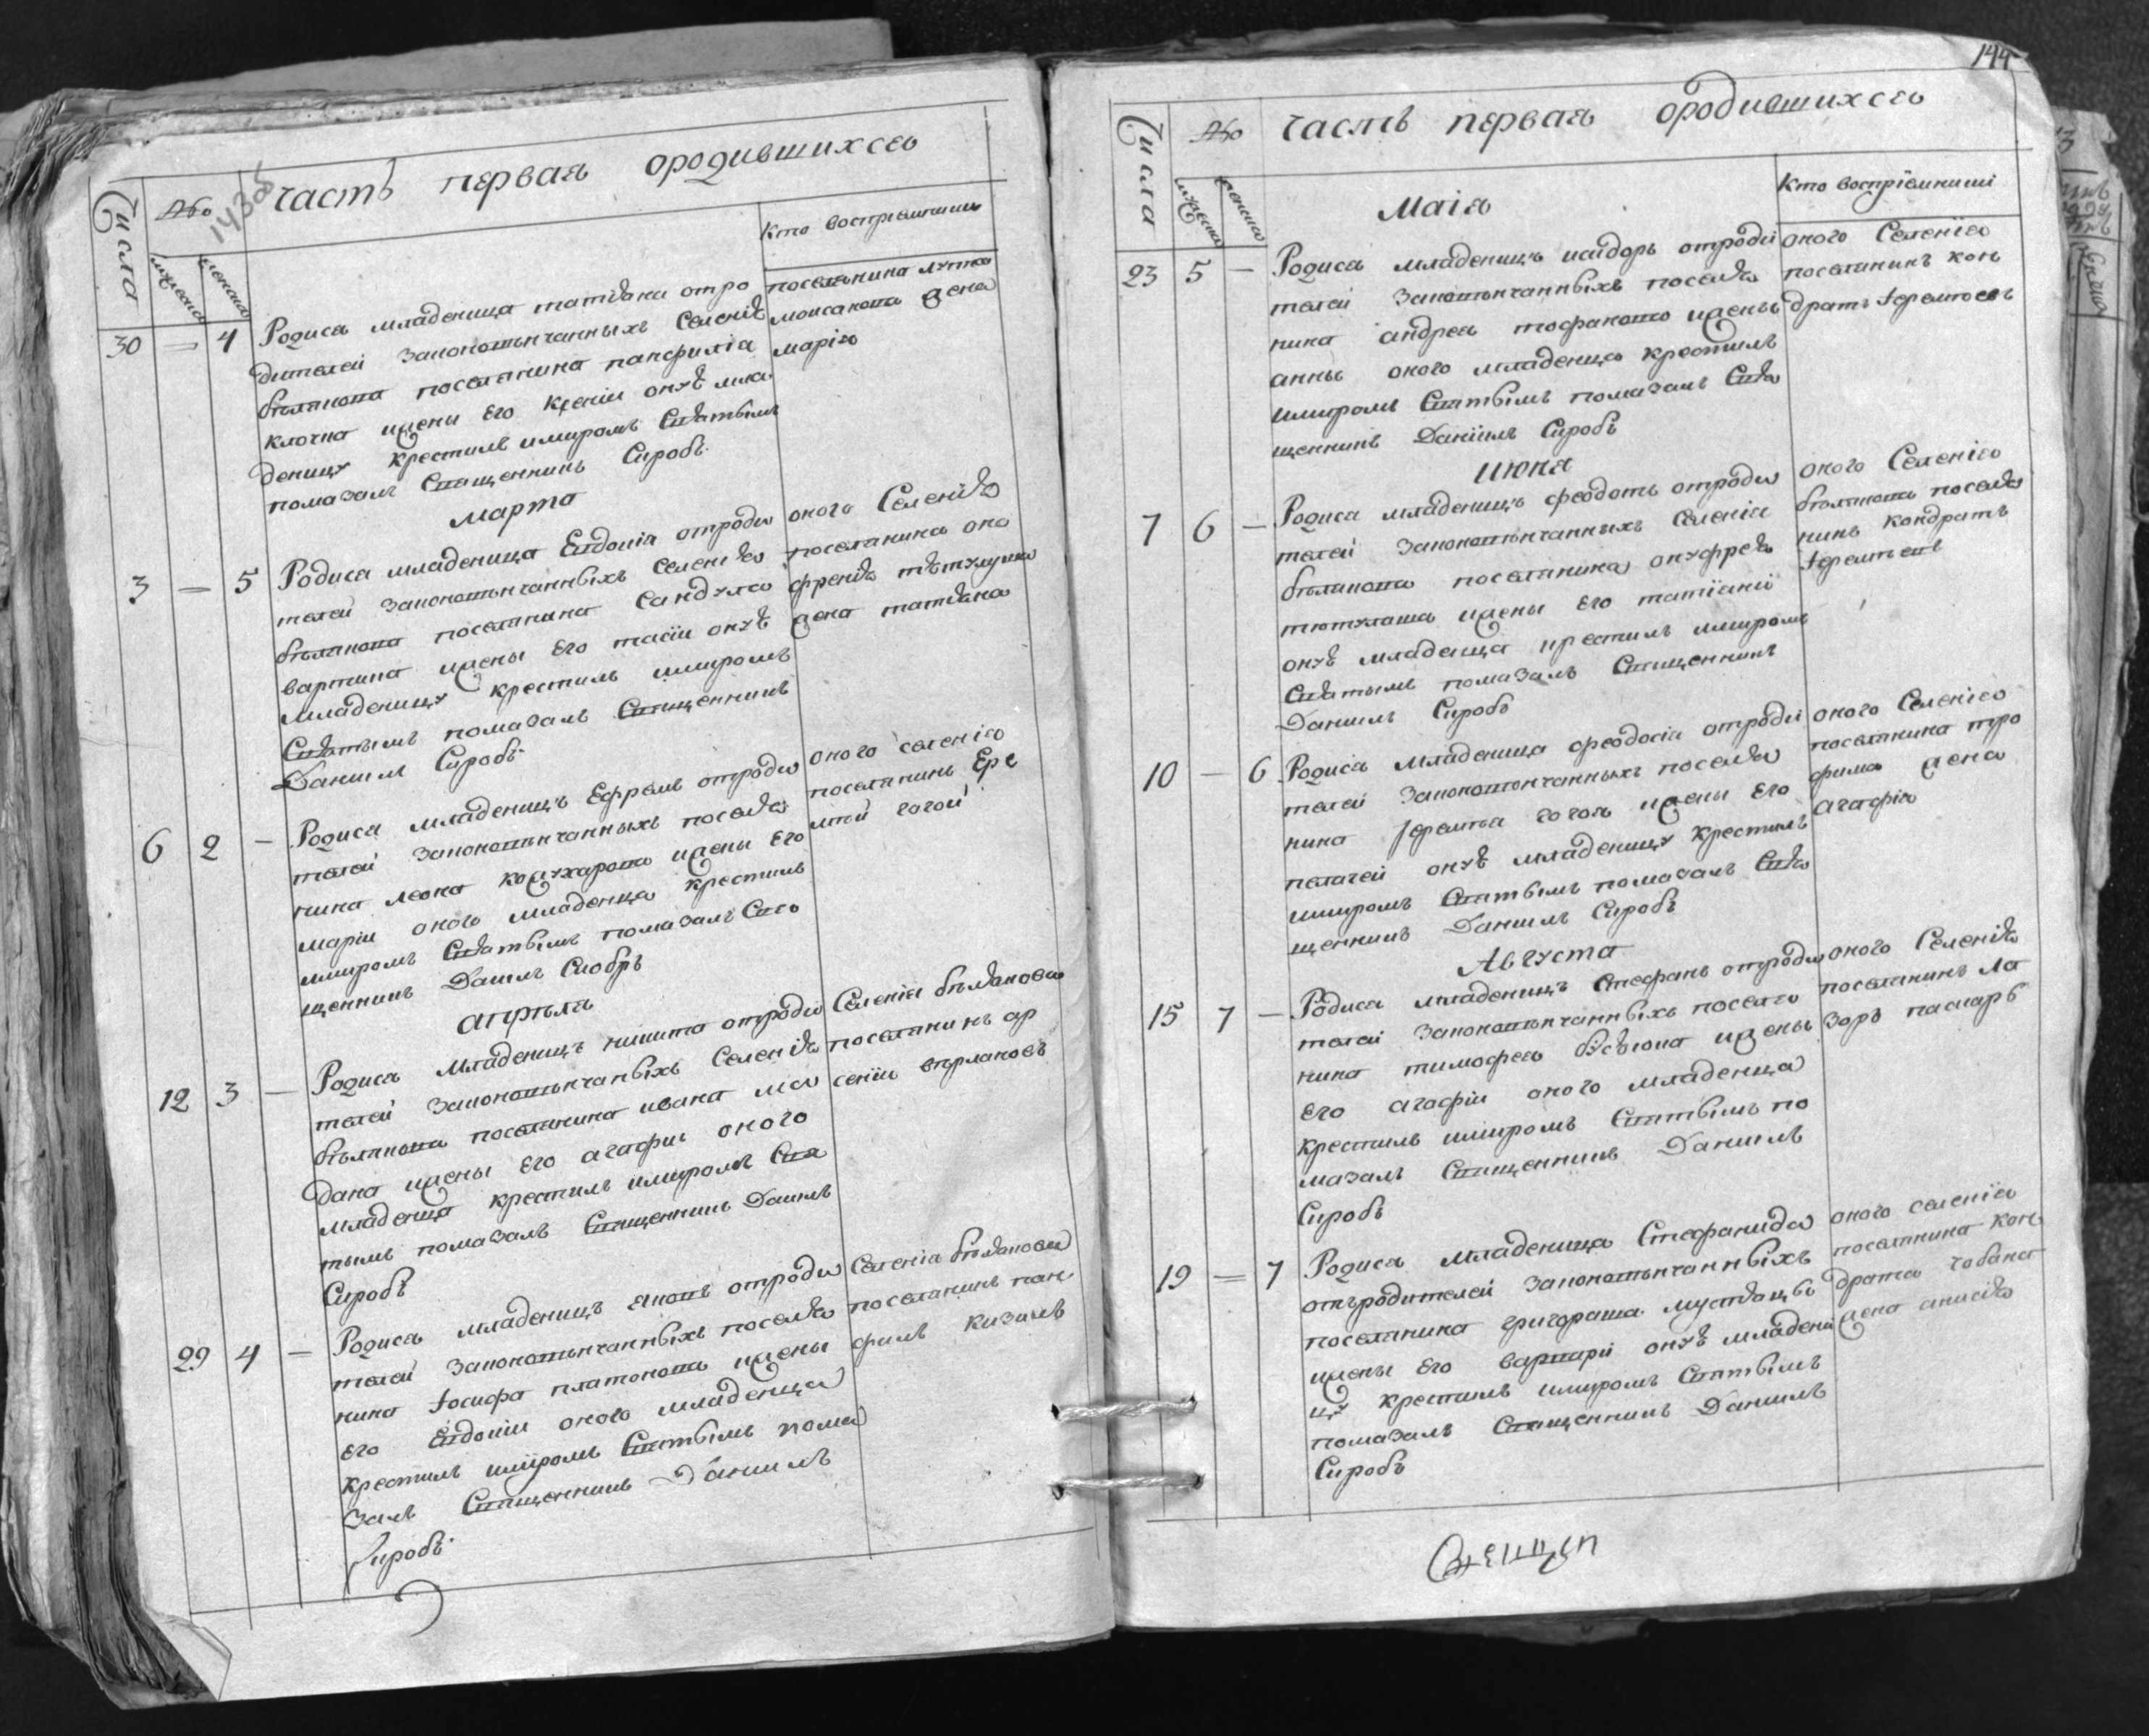 143об
Числа
часть первая ородившихся
мужеска
женска
Кто восприемники
30 — 4
Родиса младеница татіана отро
дителей законовѣнчанныхъ селенія
бѣлянова поселянина панфилія
клочна ижены его ксеніи онуѣ мла
деницу крестилъ имиромъ Святымъ
помазалъ Священникъ Сиробъ
поселянина лупа
моисанова жена
марія
Марта
3 — 5
Родиса младеница Евдокія отроди
телей законовѣнчанныхъ селенія
бѣлянова поселянина сандула
вартина ижены его тасіи онуѣ
младеницу крестилъ имиромъ
Святымъ помазалъ Священникъ
Даниил Сиробъ
оного Селенія
поселянина оно
френія тѣтулушка
жена татіана
6 2 —
Родиса младеницъ Ефремъ отроди
телей законовѣнчанныхъ поселя
нина леона кожухарова ижены его
маріи оного младенца крестилъ
имиромъ Святымъ помазалъ Свя
щенникъ Даиилъ Сиобръ
оного селенія
поселянинъ Ере
мѣй гогой
апрѣля
12 3 —
Родиса младеницъ никита отроди
телей законовѣнчаныхъ Селенія
бѣлянова поселянина ивана мол
дана ижены его агафіи оного
младенца крестилъ имиромъ Свя
тымъ помазалъ Священникъ Даиилъ
Сиробъ
Селенія бѣляновки
поселянинъ ар
сеніи вѣрлановъ
29 4 —
Родиса младеницъ яковъ отроди
телей законовѣнчанныхъ поселя
нина Іосифа платонова ижены
его Евдокіи оного младенца
крестилъ имиромъ Святымъ пома
залъ Священникъ Даниилъ
Сиробъ
Селенія бѣляновки
поселянинъ пан
филъ кизимъ
144
Числа
часть первая ородившихся
мужеска
женска
Маія
Кто воспріемники
23 5 —
Родиса младеницъ исидоръ отроди
телей законовѣнчанныхъ поселя
нина андрея тофаново ижены
анны оного младенца крестилъ
имиромъ Святымъ помазалъ Свя
щенникъ Даніилъ Сиробъ
оного Селенія
поселянинъ кон
дратъ Іеремтовъ
июня
7 6 —
Родиса младеницъ феодотъ отроди
телей законовѣнчанныхъ Селенія
бѣлянова поселянина онуфрея
тютулаша ижены его татіаніи
онуѣ младенца крестилъ имиромъ
Святымъ помазалъ Священникъ
Даниилъ Сиробъ
оного Селенія
бѣлянова поселя
нинъ кондратъ
10 — 6
Родиса младеница феодосія отроди
телей законовѣнчанныхъ поселя
нина Іеремѣя гоголь ижены его
пелагеи онуѣ младеницу крестилъ
имиромъ Святымъ помазалъ Свя
щенникъ Даниилъ Сиробъ
оного Селенія
поселянина тро
фима жена
агафія
Августа
15 7 —
Родиса младеницъ Стефанъ отроди
телей законовѣнчанныхъ поселя
нина тимофея ижены
его агафіи оного младенца
крестилъ имиромъ Святымъ по
мазалъ Священникъ Даниилъ
Сиробъ
оного Селенія
поселянинъ ла
зоръ пасиаръ
19 — 7
Родиса младеница Стефанида
отъродителей законовѣнчанныхъ
поселянина григораша мустяцы
ижены его варварі онуѣ младени
цу крестилъ имиромъ Святымъ
помазалъ Священникъ Даниилъ
Сиробъ
оного селенія
поселянина кон
драта чобана
жена анисія